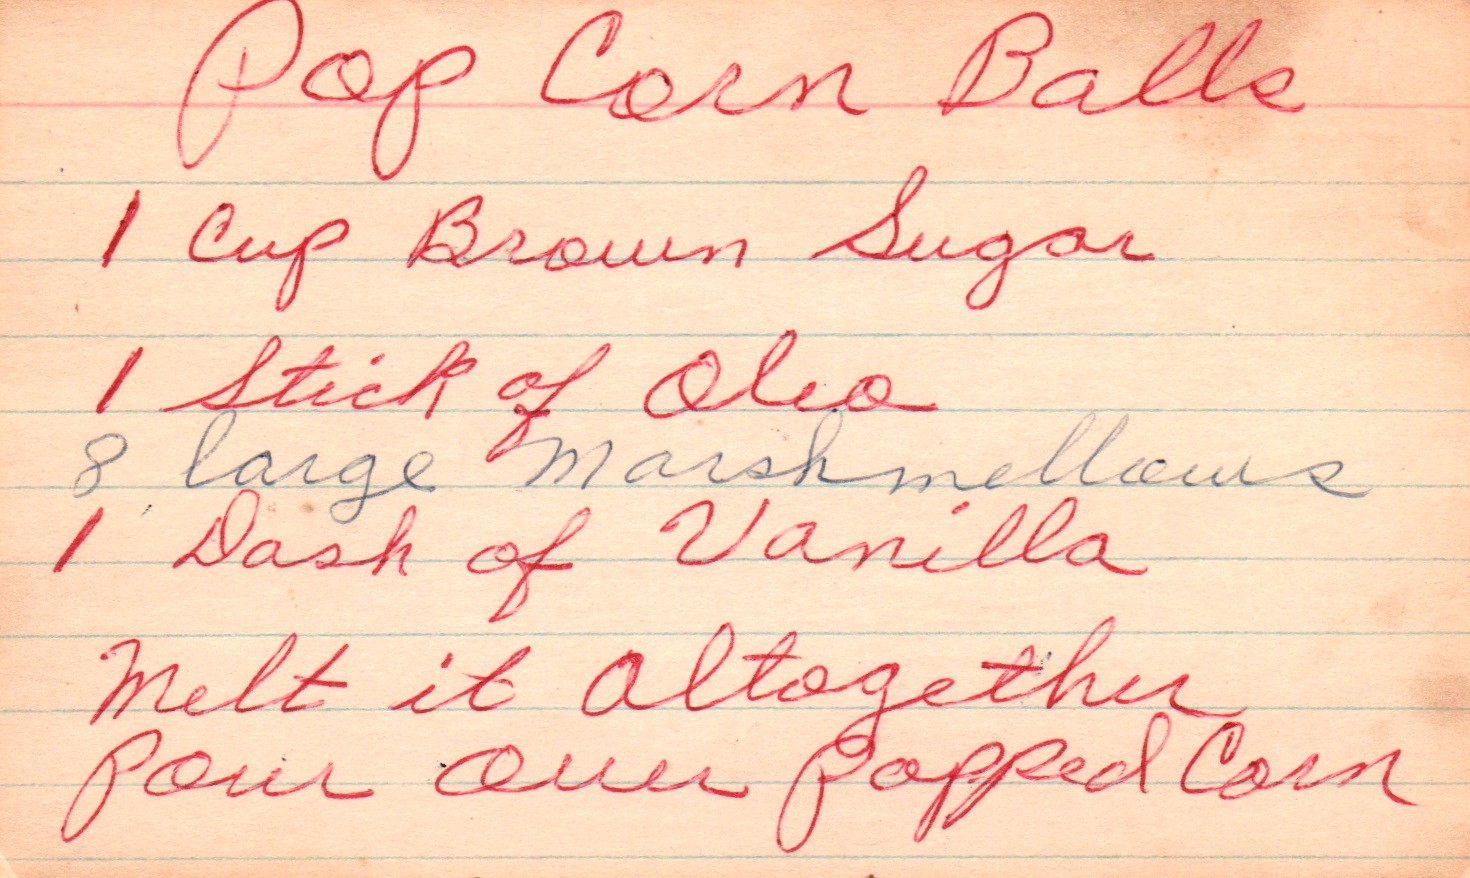 Pop Corn Balls
1 Cup Brown Sugar
1 Stick of Oleo
8 large Marshmellows
1 Dash of Vanilla
Melt it Altogether
Pour over Popped Corn